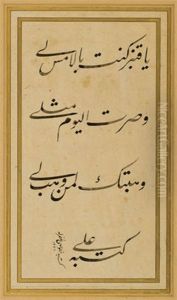 یا قنبر کنت بالامس لی
وصرت الیوم مثلی
وهبتک لمن وهبک لی
کتبه علی